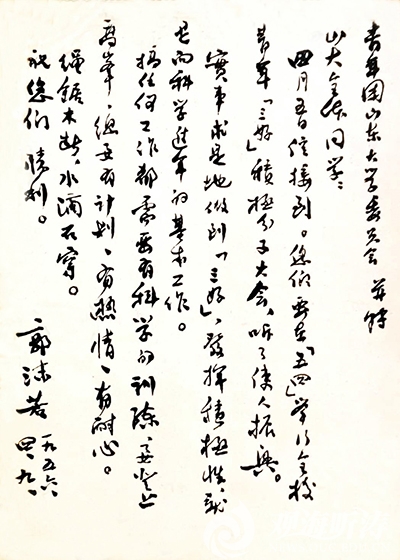 青年团山东大学委员会 并转
山大全体同学:
四月五日信接到。您们要在「五四」举行全校
青年「三好」積極分子大会,听了使人振興。
實事求是地做到「三好」,發揮積極性,就
是向科学進军的基本工作。
搞任何工作都需要有科学的訓練,要登上
高峯,總要有计划、有熱情、有耐心。
绳鋸木断,水滴石穿。
祝您们 勝利。
郭沫若
一九五六
四、九、